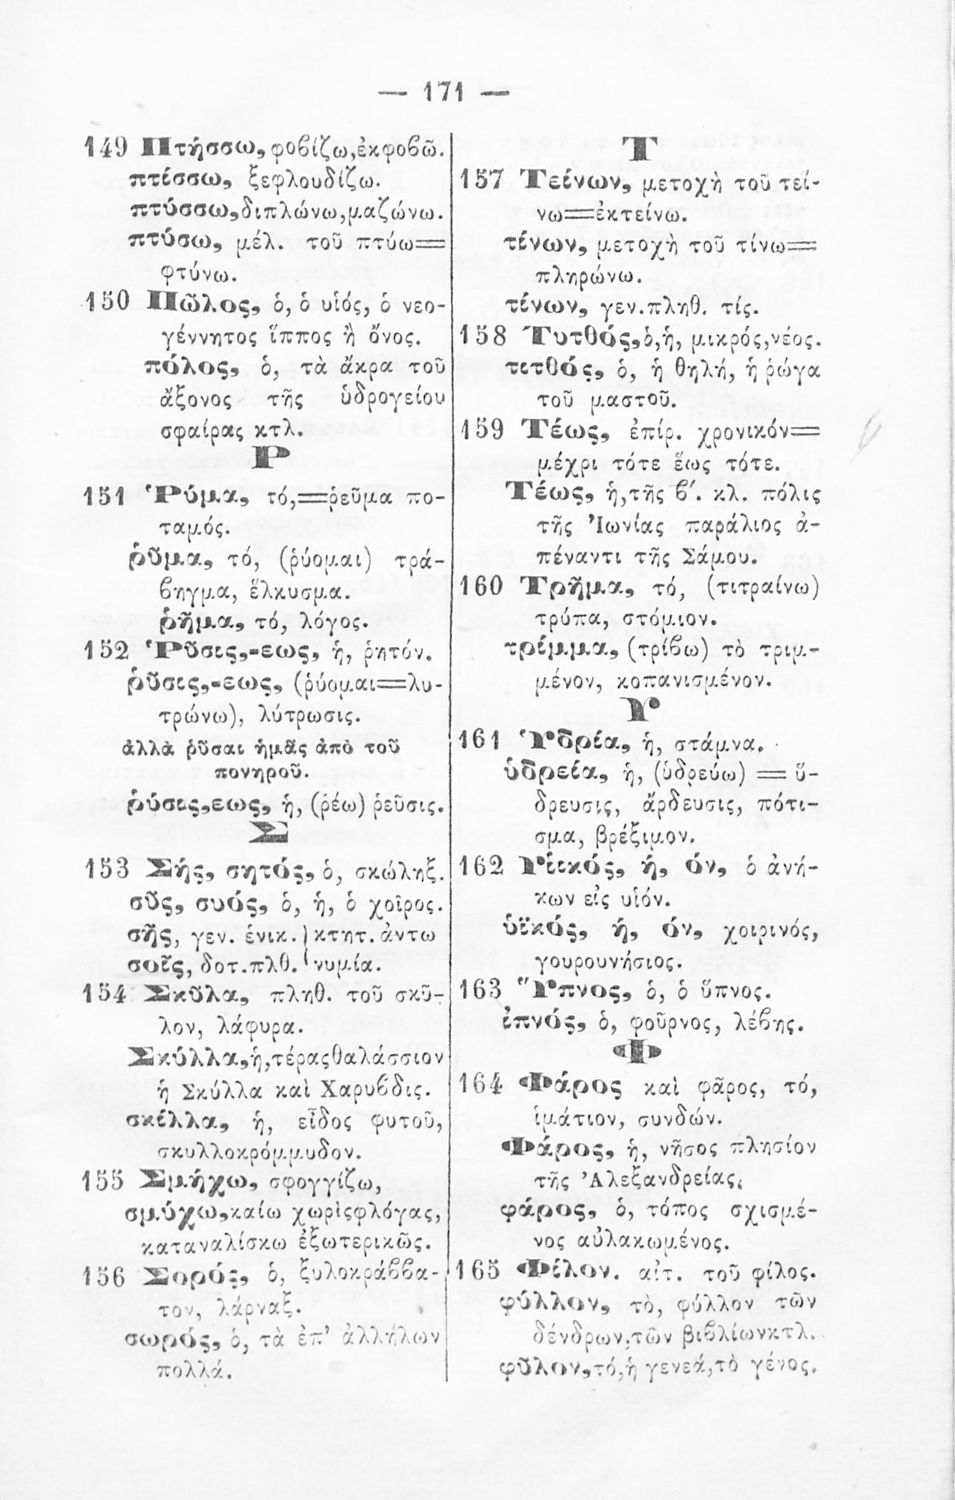 — 171 —
149 Πτήσσω, φοβίζω, ἐκφοβῶ.
πτίσσω, ξεφλουδίζω.
πτύσσω, διπλώνω, μαζώνω.
πτύσω, μέλ. τοῦ πτύω=
φτύνω.
150 Πῶλος, ὁ, ὁ υἱός, ὁ νεο-
γέννητος ἵππος ἢ ὄνος.
πόλος, ὁ, τὰ ἄκρα τοῦ
ἄξονος τῆς ὑδρογείου
σφαίρας κτλ.
Ρ
151 Ῥύμα, τό,=ῥεῦμα πο-
ταμός.
ῥῦμα, τό, (ῥύομαι) τρά-
βηγμα, ἕλκυσμα.
ῥῆμα, τό, λόγος.
152 Ῥῦσις,-εως, ἡ, ῥητόν.
ῥῦσις,-εως, (ῥύομαι=λυ-
τρώνω), λύτρωσις.
ἀλλὰ ῥῦσαι ἡμᾶς ἀπὸ τοῦ
πονηροῦ.
ῥύσις, εως, ἡ, (ῥέω) ῥεῦσις.
Σ
153 Σής, σητός, ὁ, σκώληξ.
σῦς, συός, ὁ, ἡ, ὁ χοῖρος.
σῆς, γεν. ἑνικ. } κτητ. ἀντω
σοῖς, δοτ. πλθ. } νυμία.
154 Σκῦλα, πληθ. τοῦ σκῦ-
λον, λάφυρα.
Σκύλλα, ἡ, τέρας θαλάσσιον
ἡ Σκύλλα καὶ Χαρυβδις.
σκίλλα, ἡ, εἶδος φυτοῦ,
σκυλλοκρόμμυδον.
155 Σμήχω, σφογγίζω,
σμύχω, καίω χωρὶς φλόγας,
καταναλίσκω ἐξωτερικῶς.
156 Σορός, ὁ, ξυλοκράββα-
τον, λάρναξ.
σωρός, ὁ, τὰ ἐπ' ἀλλήλων
πολλά.
Τ
157 Τείνων, μετοχὴ τοῦ τεί-
νω=ἐκτείνω.
τίνων, μετοχὴ τοῦ τίνω=
πληρώνω.
τίνων, γεν. πληθ. τίς.
158 Τυτθός, ὁ, ἡ, μικρός, νέος.
τιτθός, ὁ, ἡ θηλή, ἡ ῥώγα
τοῦ μαστοῦ.
159 Τέως, ἐπίρ. χρονικόν=
μέχρι τότε ἕως τότε.
Τέως, ἡ, τῆς β΄. κλ. πόλις
τῆς Ἰωνίας παράλιος ἀ-
πέναντι τῆς Σάμου.
160 Τρῆμα, τό, (τιτραίνω)
τρύπα, στόμιον.
τρίμμα, (τρίβω) τὸ τριμ-
μένον, κοπανισμένον.
Υ
161 Ὑδρία, ἡ, στάμνα.
ὑδρεία, ἡ, (ὑδρεύω) = ὕ-
δρευσις, ἄρδευσις, πότι-
σμα, βρέξιμον.
162 Υἱικός, ή, όν, ὁ ἀνή-
κων εἰς υἱόν.
ὑϊκός, ή, όν, χοιρινός,
γουρουνήσιος.
163 Ὕπνος, ὁ, ὁ ὕπνος.
ἰπνός, ὁ, φοῦρνος, λέβης.
Φ
164 Φάρος καὶ φᾶρος, τό,
ἱμάτιον, συνδών.
Φάρος, ἡ, νῆσος πλησίον
τῆς Ἀλεξανδρείας,
φάρος, ὁ, τόπος σχισμέ-
νος αὐλακωμένος.
165 Φίλον. αἰτ. τοῦ φίλος.
φύλλον, τὸ, φύλλον τῶν
δένδρων, τῶν βιβλίων κτλ.
φῦλον, τό, ἡ γενεά, τὸ γένος.